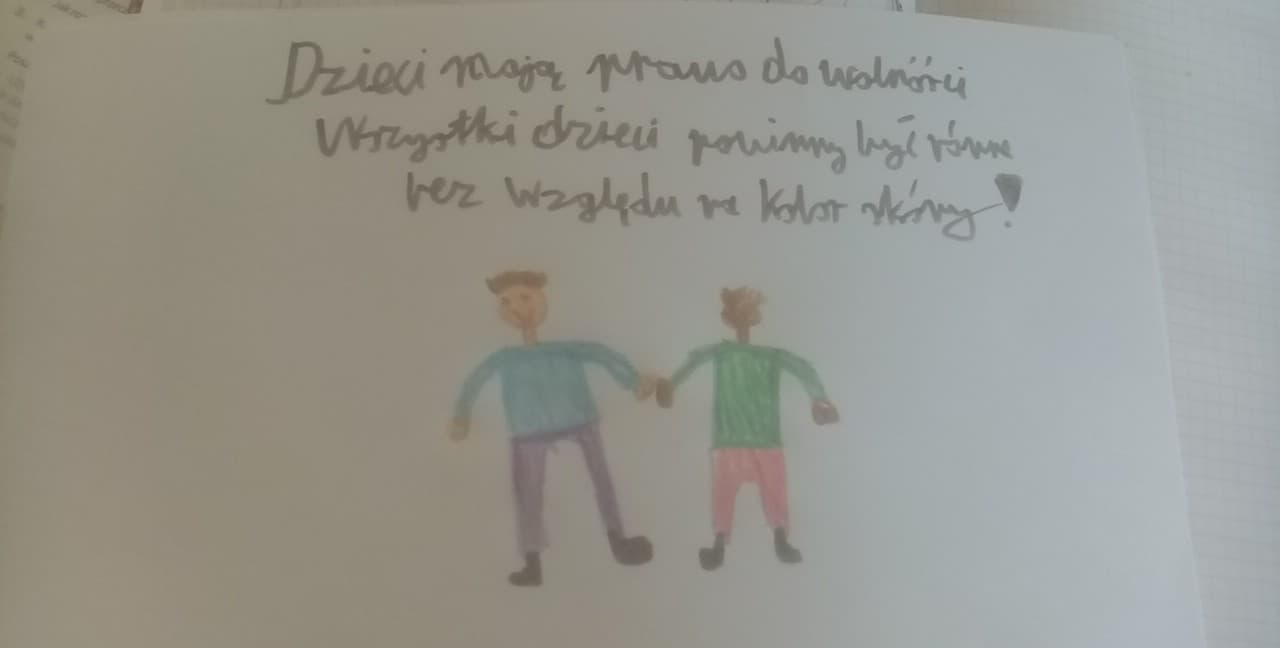 Dzieci mają prawo do wolności
Wszystki dzieci powinny być równe
bez względu na kolor skóry!